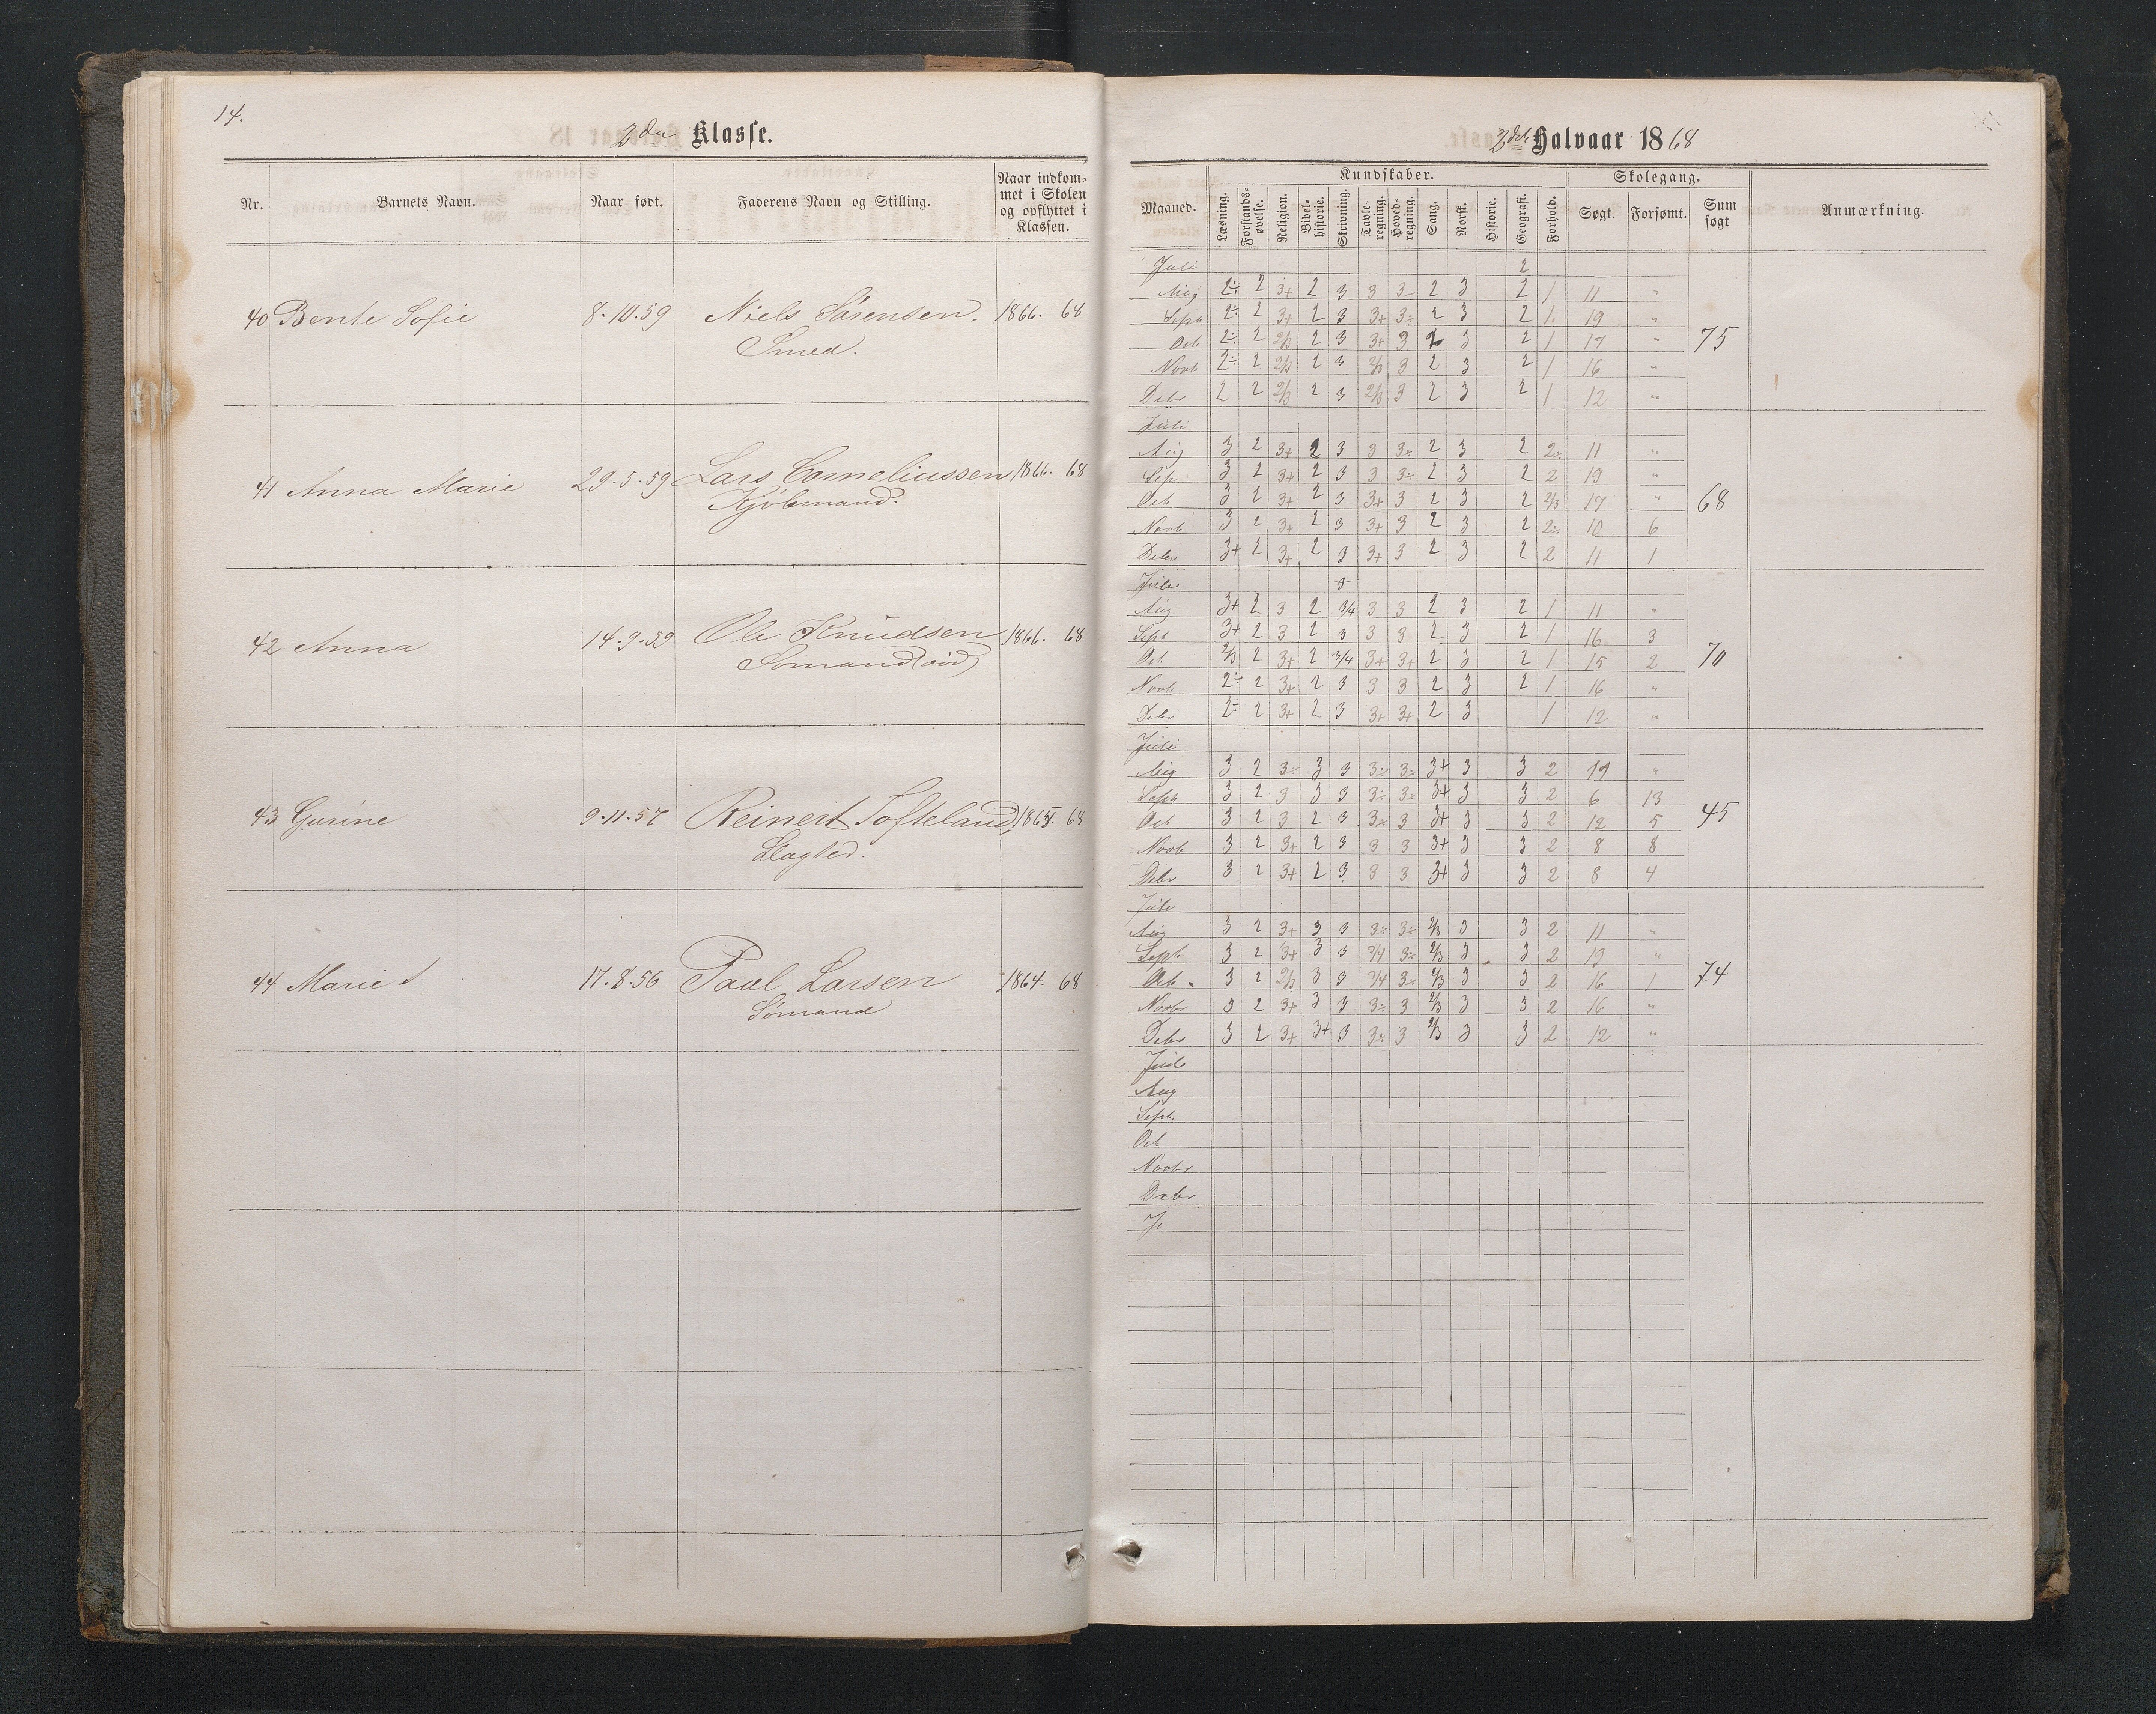 14.
2den Klasse.
Nr. Barnets Navn. Naar født. Faderens Navn og Stilling. Naar indkommet i Skolen og opflyttet i Klassen.
40 Bente Sofie 8-10-59 Niels Sørensen. 1866. 68
Smed.
41 Anna Marie 29-5-59 Lars Corneliussen 1866. 68
Kjøbmand.
42 Anna 14-9-59 Ole Knudsen 1866. 68
Sømand (død)
43 Gurine 9-11-57 Reinert Tofteland, 1865. 68
44 Marie 17-8-56 Paul Larsen 1864. 68
Sømand
2det Halvaar 1868
Kundskaber. Skolegang.
Maaned. Læsning. Forstandsøvelse. Religion. Bibelhistorie. Skrivning. Tavleregning. Hovedregning. Sang. Norsk. Historie. Geografi. Forhold. Søgt. Forsømt. Sum søgt Anmærkning.
Juli 2
Aug 2÷ 2 3+ 2 3 3 3- 2 3 2 1 11 "
Sept 2÷ 2 3+ 2 3 3+ 3÷ 2 3 2 1 19 "
Oct 2÷ 2 2/3 2 3 3+ 3 2 3 2 1 17 " 75
Novb 2÷ 2 2/3 2 3 2/3 3 2 3 2 1 16 "
Debr 2 2 2/3 2 3 2/3 3 2 3 2 1 12 "
Juli
Aug 3 2 3+ 2 3 3 3÷ 2 3 2 2÷ 11 "
Sep 3 2 3+ 2 3 3 3÷ 2 3 2 2 19 "
Oct 3 2 3+ 2 3 3+ 3 2 3 2 2/3 17 " 68
Novb 3 2 3+ 2 3 3+ 3 2 3 2 2÷ 10 6
Debr 3+ 2 3+ 2 3 3+ 3 2 3 2 2 11 1
Juli
Aug 3+ 2 3 2 3/4 3 3 2 3 2 1 11 "
Sept 3+ 2 3 2 3 3 3 2 3 2 1 16 3
Oct 2/3 2 3+ 2 3/4 3+ 3+ 2 3 2 1 15 2 70
Novb 2÷ 2 3+ 2 3 3 3 2 3 2 1 16 "
Debr 2÷ 2 3+ 2 3 3+ 3+ 2 3 1 12 "
Juli
Aug 3 2 3÷ 3 3 3÷ 3÷ 3+ 3 3 2 "
Sept 3 2 3 3 3 3÷ 3÷ 3+ 3 3 2 6 13
Oct 3 2 3 2 3 3÷ 3 3+ 3 3 2 12 5 45
Novb 3 2 3+ 2 3 3 3 3+ 3 3 2 8 8
Debr 3 2 3+ 2 3 3 3 3+ 3 3 2 8 4
Juli
Aug 3 2 3+ 3 3 3÷ 3÷ 2/3 3 3 2 11 "
Sept 3 2 3+ 3 3 3/4 3÷ 2/3 3 3 2 19 "
Octb 3 2 2/3 3 3 3/4 3÷ 2/3 3 3 2 16 1 74
Novbr 3 2 3+ 3 3 3÷ 3 2/3 3 3 2 16 "
Debr 3 2 3+ 3+ 3 3÷ 3 2/3 3 3 2 12 "
Juli
Aug
Sept.
Oct
Novbr
Debr